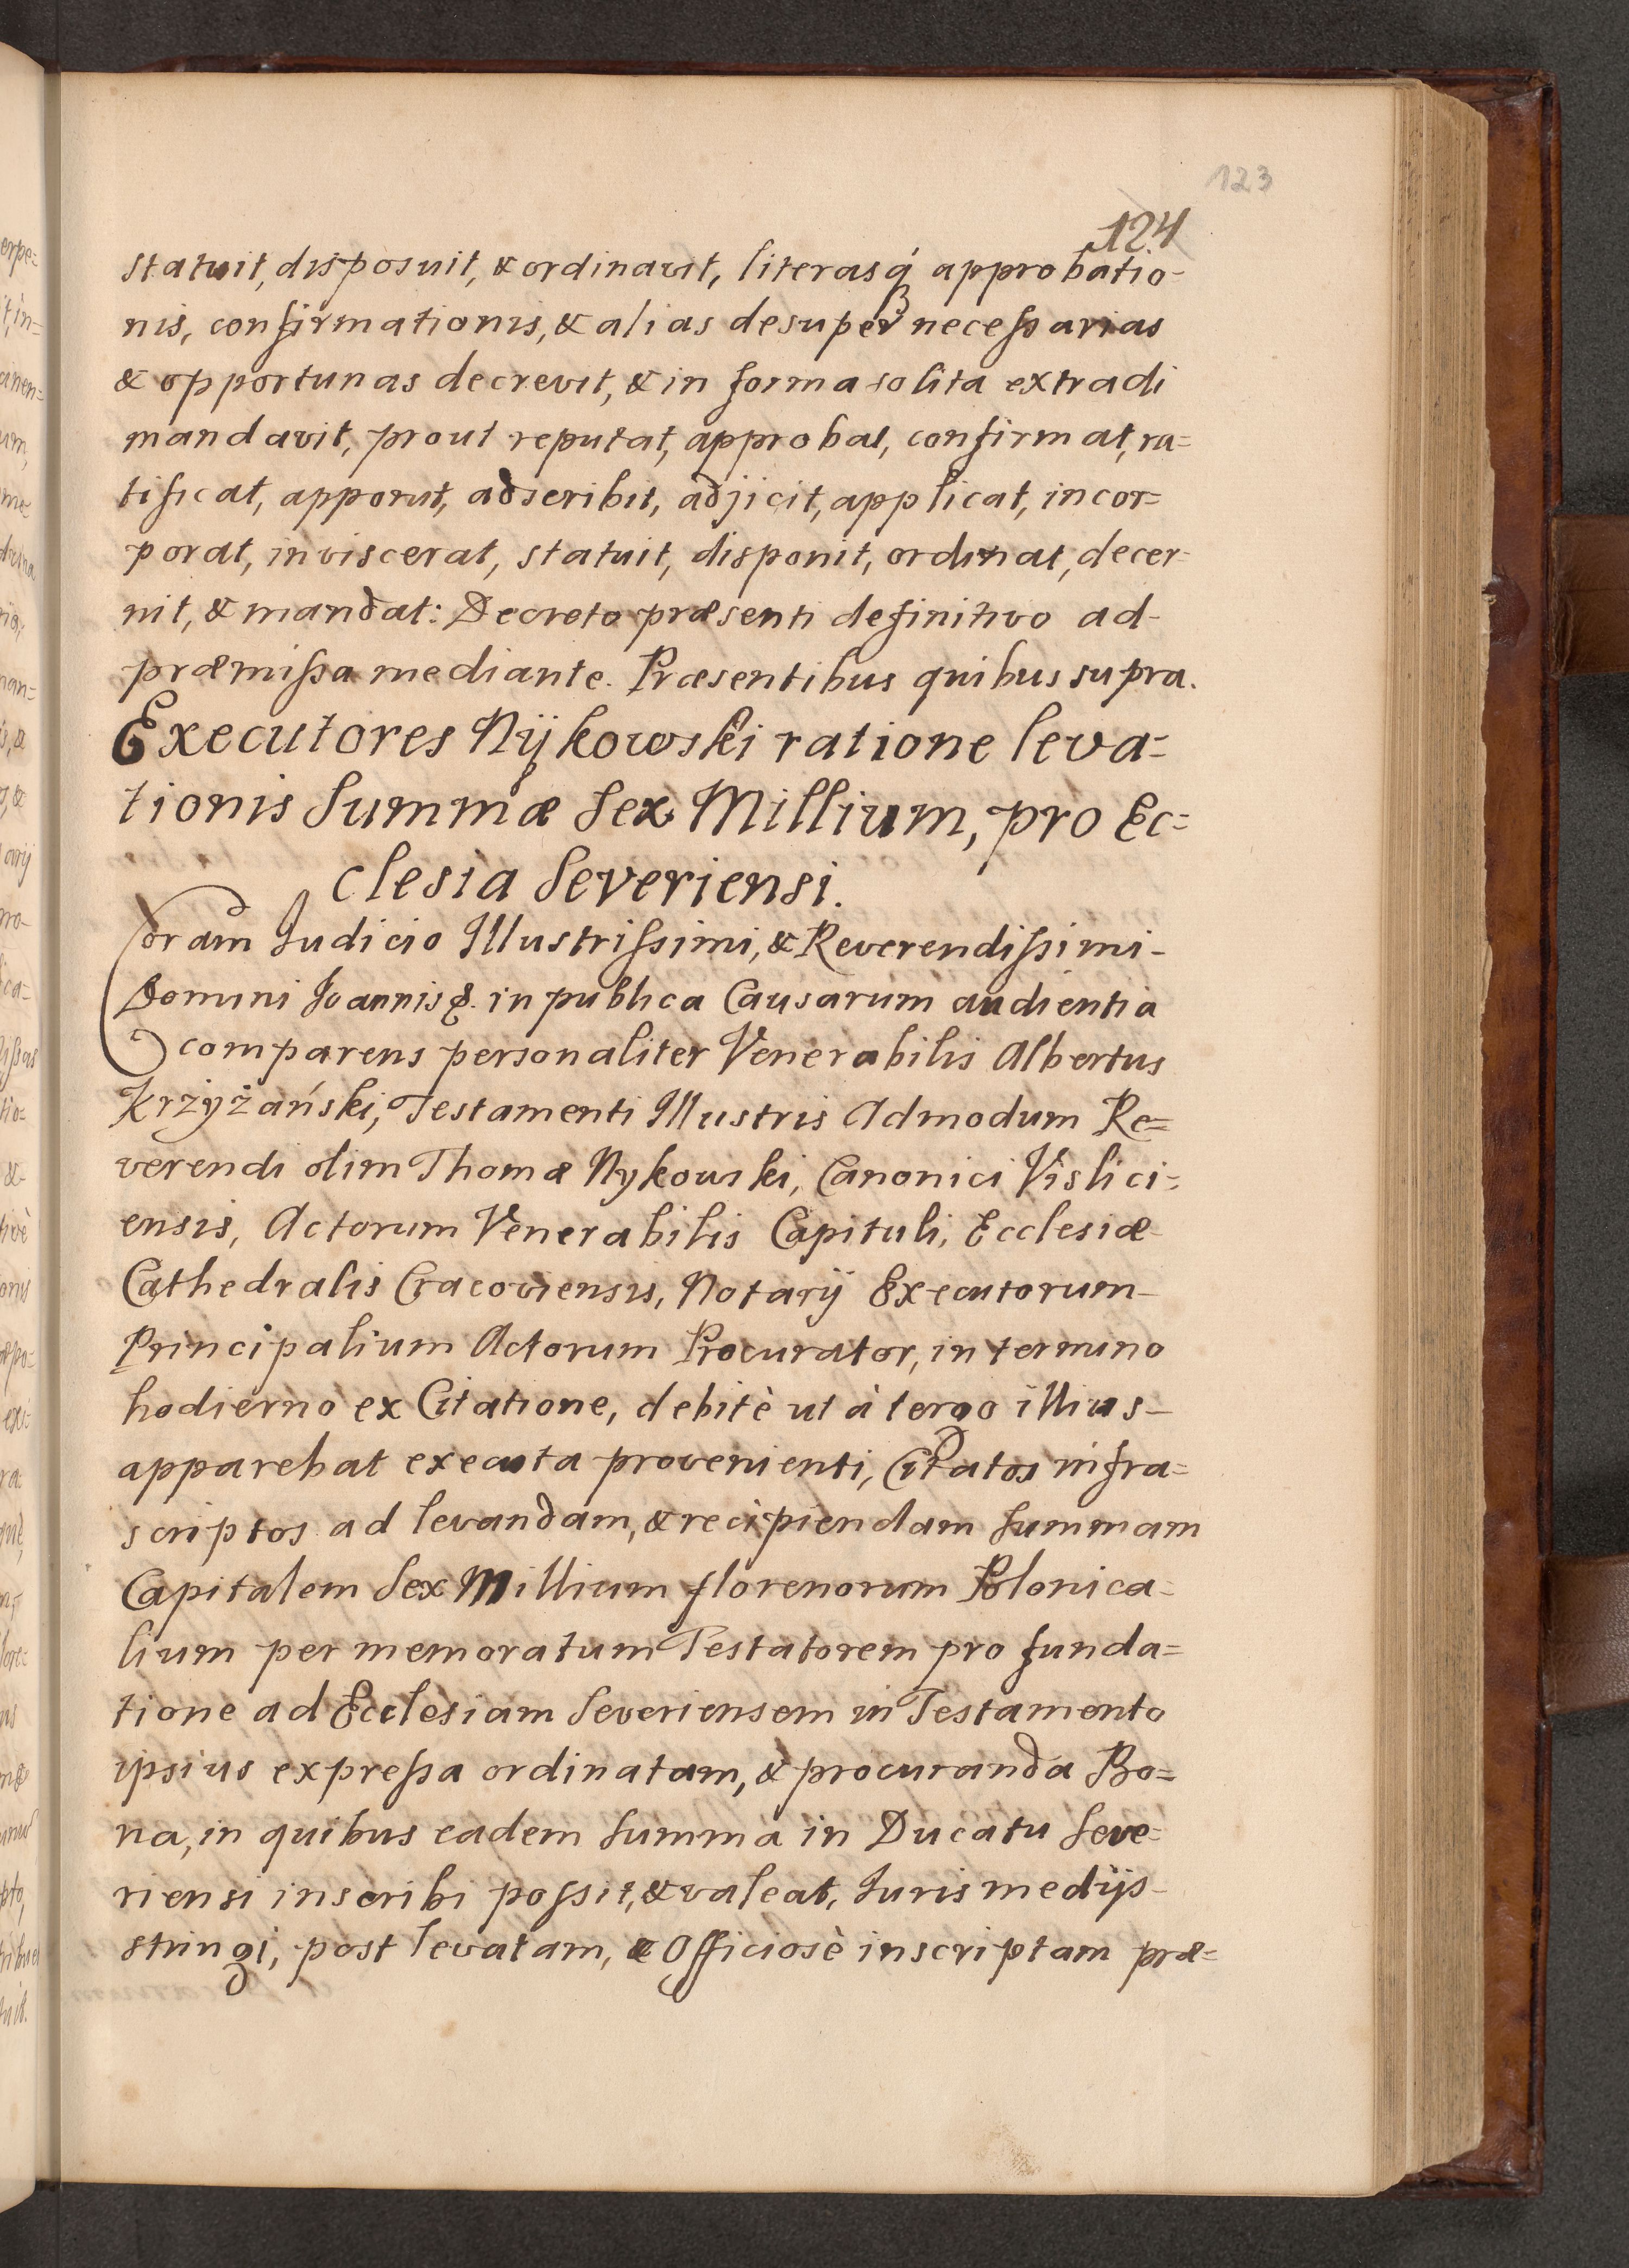 123
124
statuit, disposuit, & ordinavit, literasq́ approbatio-
nis, confirmationis, & alias desuper necessarias
& opportunas decrevit, & in forma solita extradi
mandavit, prout reputat, approbat, confirmat, ra=
tificat, apponit, adscribit, adjicit, applicat, incor=
porat, inviscerat, statuit, disponit, ordinat, decer-
nit, & mandat: Decreto præsenti definitivo ad-
præmissa mediante. Præsentibus quibus supra.
Executores Nÿkowski ratione leva=
tionis Summæ Sex Millium, pro Ec=
clesia Severiensi.
Coram Judicio Illustrissimi, & Reverendissimi-
Domini Joannis &. in publica Causarum audientia
comparens personaliter Venerabilis Albertus
Krzyżański, Testamenti Illustris Admodum Re=
verendi olim Thomæ Nykowski, Canonici Vislici=
ensis, Actorum Venerabilis Capituli, Ecclesiæ-
Cathedralis Cracoviensis, Notarÿ Executorum-
Principalium Actorum Procurator, in termino
hodierno ex Citatione, debitè ut à tergo illius-
apparebat executa provenienti, Citatos infra=
scriptos ad levandam, & recipiendam Summam
Capitalem Sex Millium florenorum Polonica-
lium per memoratum Testatorem pro funda=
tione ad Ecclesiam Severiensem in Testamento
ipsius expressa ordinatam, & procuranda Bo=
na, in quibus eadem Summa in Ducatu Seve=
riensi inscribi possit, & valeat, Juris medÿs-
stringi, post levatam, & Officiosè inscriptam præ=